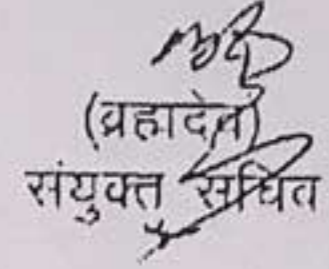 (व्रहादेव)
संयुक्त सचिव